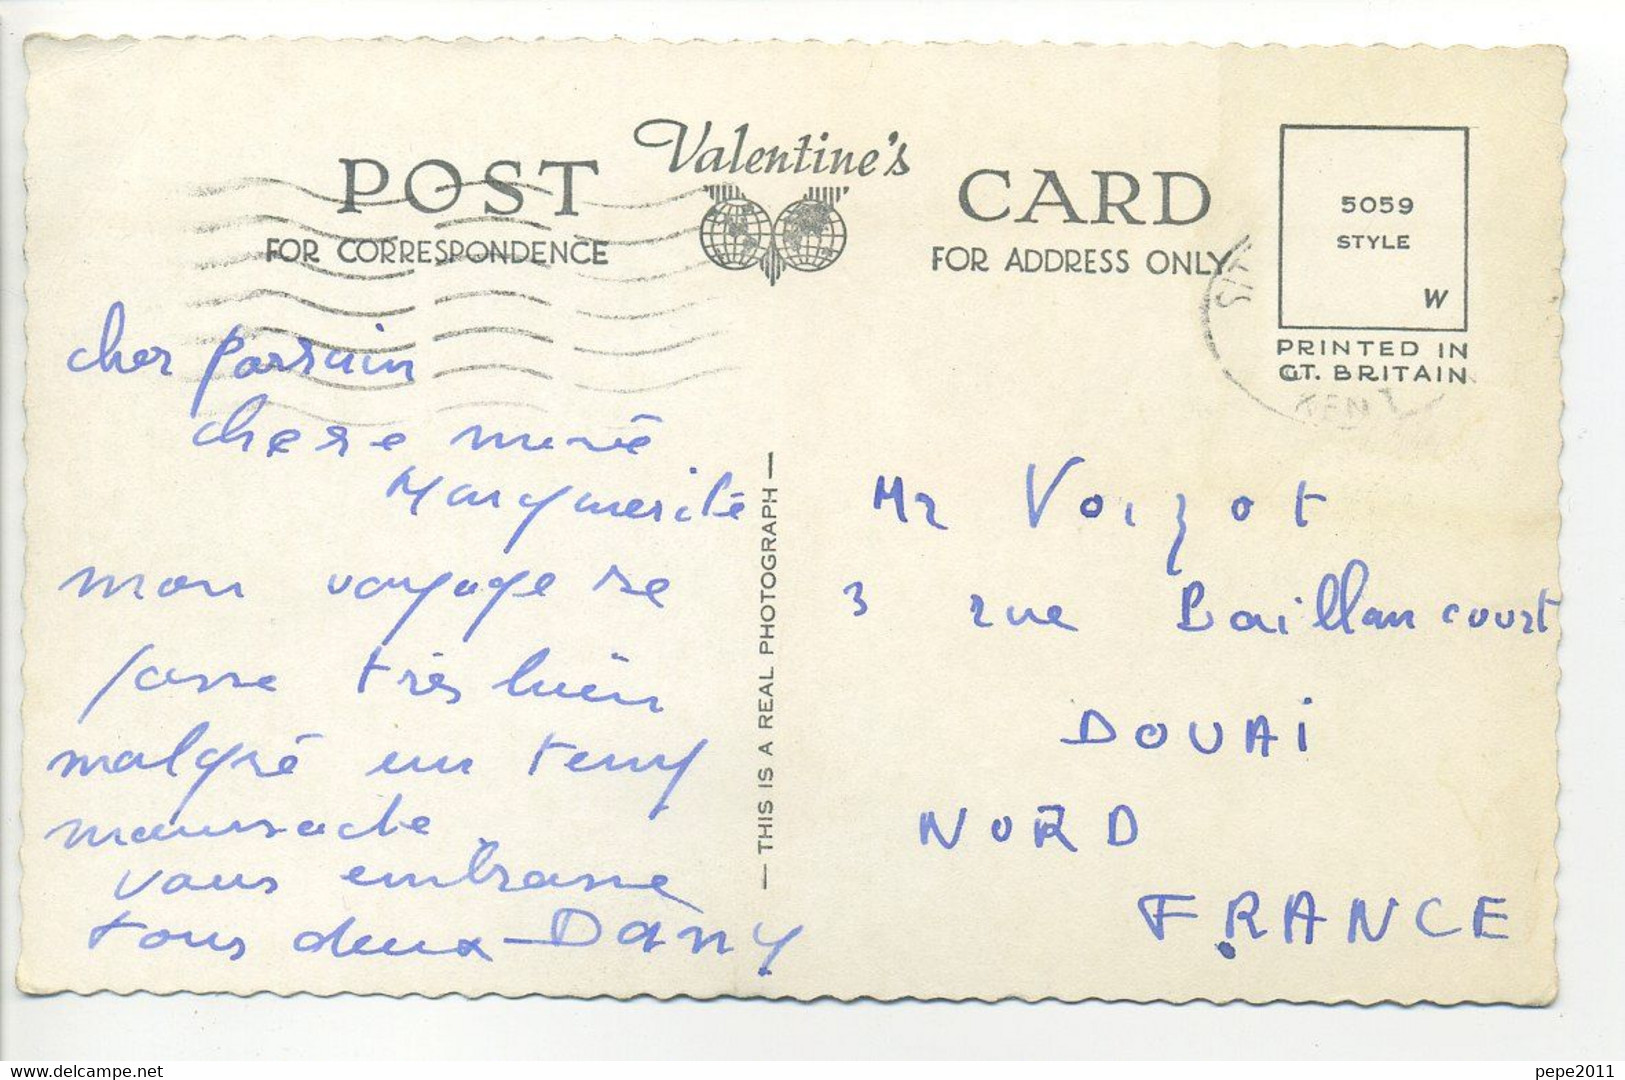 Valentine's
POST CARD
FOR CORRESPONDENCE
FOR ADDRESS ONLY
5059
STYLE
W
PRINTED IN
GT. BRITAIN
KENT
cher parrain
chere mené
Marguerite
mon voyage se
passe très bien
malgré un temp
maussade
vous embrasse
tous deux - Dany
— THIS IS A REAL PHOTOGRAPH —
Mr Voizot
3 rue Baillancourt
DOUAI
NORD
FRANCE
www.delcampe.net
pepe2011